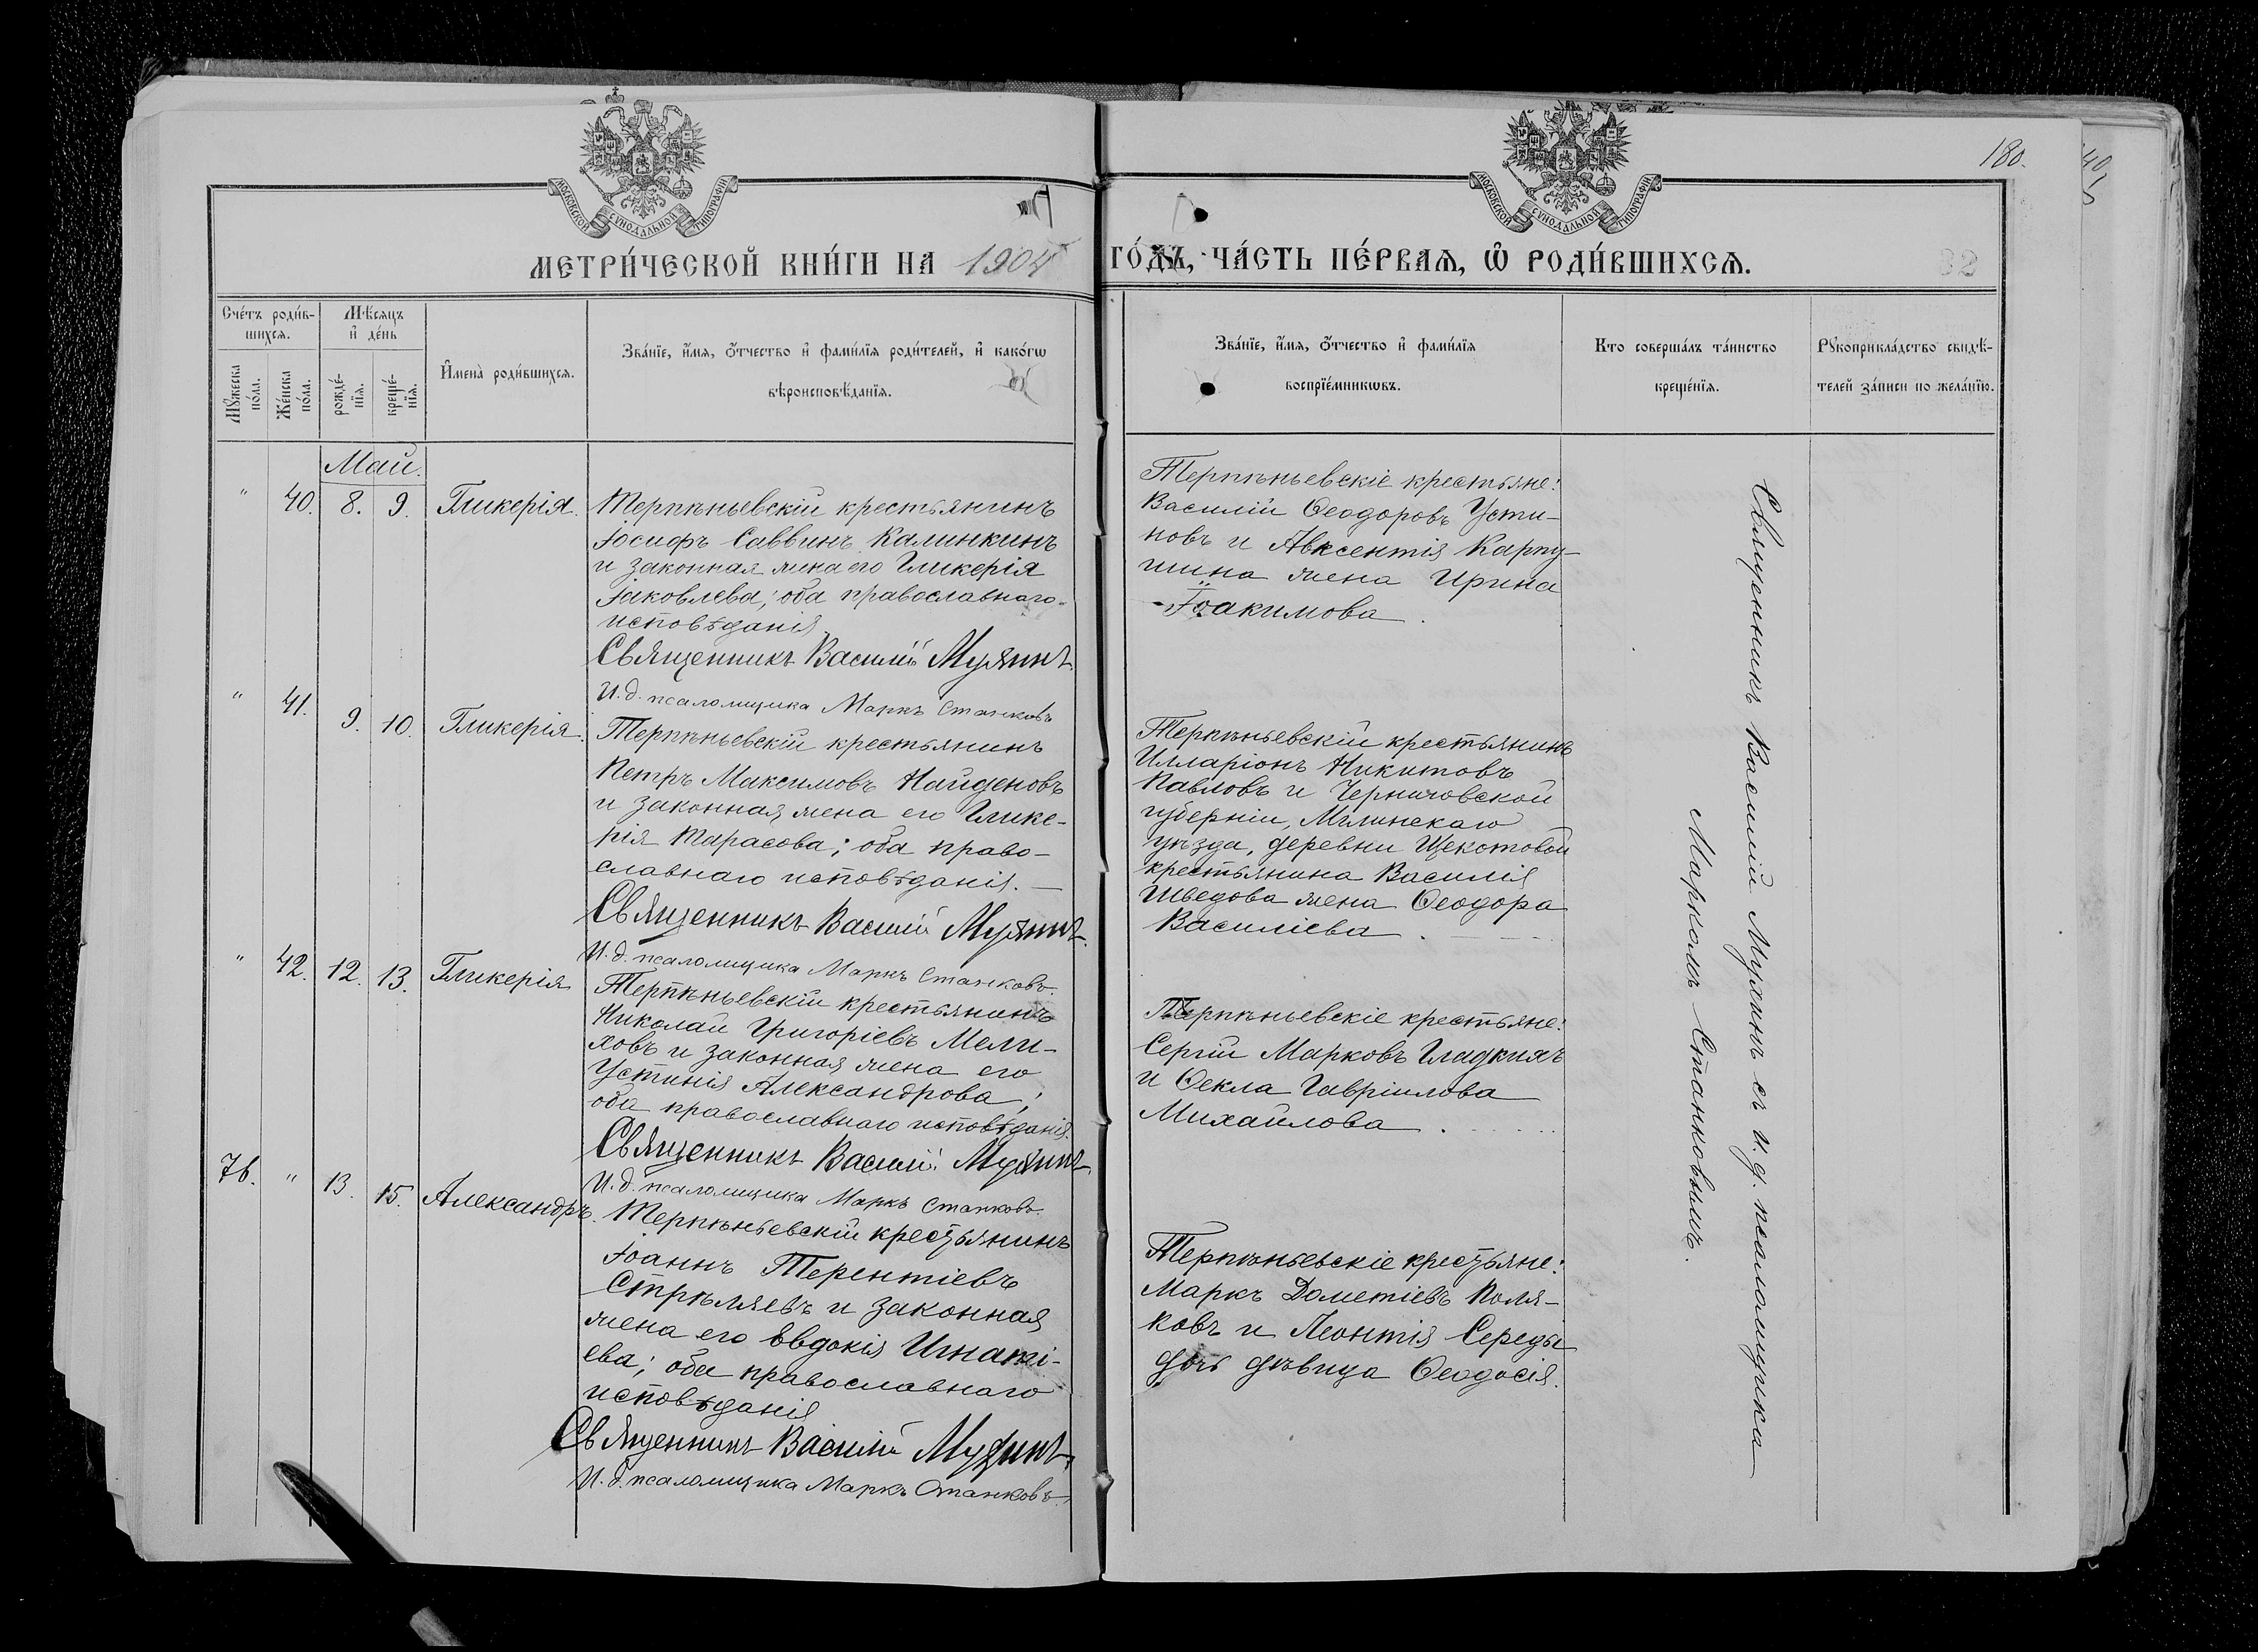 МОСКОВСКОЙ СѴНОДАЛЬНОЙ ТИПОГРАФІИ
МОСКОВСКОЙ СѴНОДАЛЬНОЙ ТИПОГРАФІИ
180.
МЕТРИ́ЧЕСКОЙ КНИ́ГИ НА 1904 ГО́ДЪ, ЧА́СТЬ ПЕ́РВАѦ, Ѡ҆ РОДИ́ВШИХСѦ.
32
Сче́тъ роди́в-
шихсѧ.
Мѣ́сѧцъ
и҆ де́нь
Мꙋ́жеска
по́ла.
Же́нска
по́ла.
рожде́-
нїѧ.
креще́-
нїѧ.
И҆мена̀ роди́вшихсѧ.
Зва́нїе, и҆́мѧ, ѻ҆́тчество и҆ фами́лїѧ роди́телей, и҆ како́гѡ
вѣроисповѣ́данїѧ.
Зва́нїе, и҆́мѧ, ѻ҆́тчество и҆ фами́лїѧ
воспрїе́мникѡвъ.
Кто соверша́лъ та́инство
креще́нїѧ.
Рꙋкоприкла́дство свидѣ́-
телей за́писи по жела́нїю.
Май.
" 40. 8. 9. Гликерія.
Терпѣньевскій крестьянинъ
Іосифъ Саввинъ Калинкинъ
и законная жена его Гликерія
Іаковлева; оба православнаго
исповѣданія
Священникъ Василій Мужинъ
И.д. псаломщика Маркъ Станковъ
Терпѣньевскіе крестьяне:
Василій Ѳеодоровъ Усти-
новъ и Авксентія Карпу-
шина жена Ирина
Іоакимова.
" 41. 9. 10. Гликерія.
Терпѣньевскій крестьянинъ
Петръ Максимовъ Найденовъ
и законная жена его Глике-
рія Тарасова; оба право-
славнаго исповѣданія.
Священникъ Василій Мужинъ
И.д. псаломщика Маркъ Станковъ.
Терпѣньевскій крестьянинъ
Илларіонъ Никитовъ
Павловъ и Черниговской
губерніи, Мглинскаго
уѣзда, деревни Щекотовой
крестьянина Василія
Шведова жена Ѳеодора
Василіева.
" 42. 12. 13. Гликерія
Терпѣньевскій крестьянинъ
Николай Григоріевъ Мели-
ховъ и законная жена его
Устинія Александрова;
оба православнаго исповѣданія.
Священникъ Василій Мужинъ
И.д. псаломщика Маркъ Станковъ.
Терпѣньевскіе крестьяне:
Сергій Марковъ Гладкихъ
и Ѳекла Гавріилова
Михайлова.
76. " 13. 15. Александръ.
Терпѣньевскій крестьянинъ
Іоаннъ Терентіевъ
Стрѣляевъ и законная
жена его Евдокія Игнаті-
ева; оба православнаго
исповѣданія
Священникъ Василій Мужинъ
И.д. псаломщика Маркъ Станковъ.
Терпѣньевскіе крестьяне:
Маркъ Дометіевъ Поля-
ковъ и Леонтія Середы
дочь дѣвица Ѳеодосія.
Священникъ Василій Мужинъ съ и.д. псаломщика
Маркомъ Станковымъ.